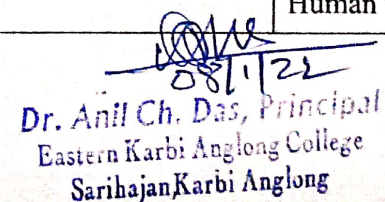 Human
08/1/22
Dr. Anil Ch. Das, Principal
Eastern Karbi Anglong College
Sarihajan,Karbi Anglong